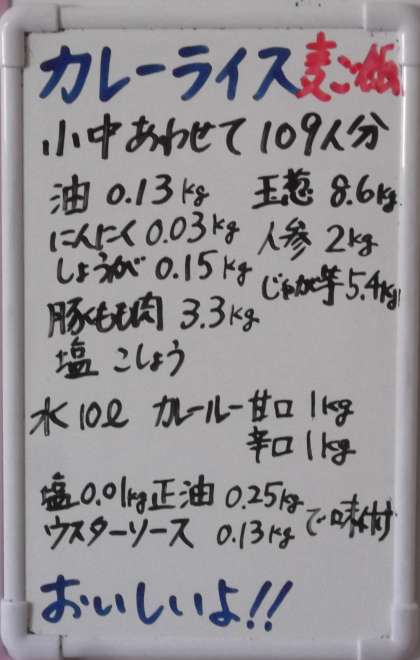 カレーライス 麦ご飯
小中あわせて109人分
油 0.13kg 玉葱 8.6kg
にんにく 0.03kg 人参 2kg
しょうが 0.15kg じゃが芋 5.4kg
豚もも肉 3.3kg
塩 こしょう
水10ℓ カレールー甘口 1kg
辛口 1kg
塩0.01kg 正油 0.25kg
ウスターソース 0.13kg で味付
おいしいよ!!